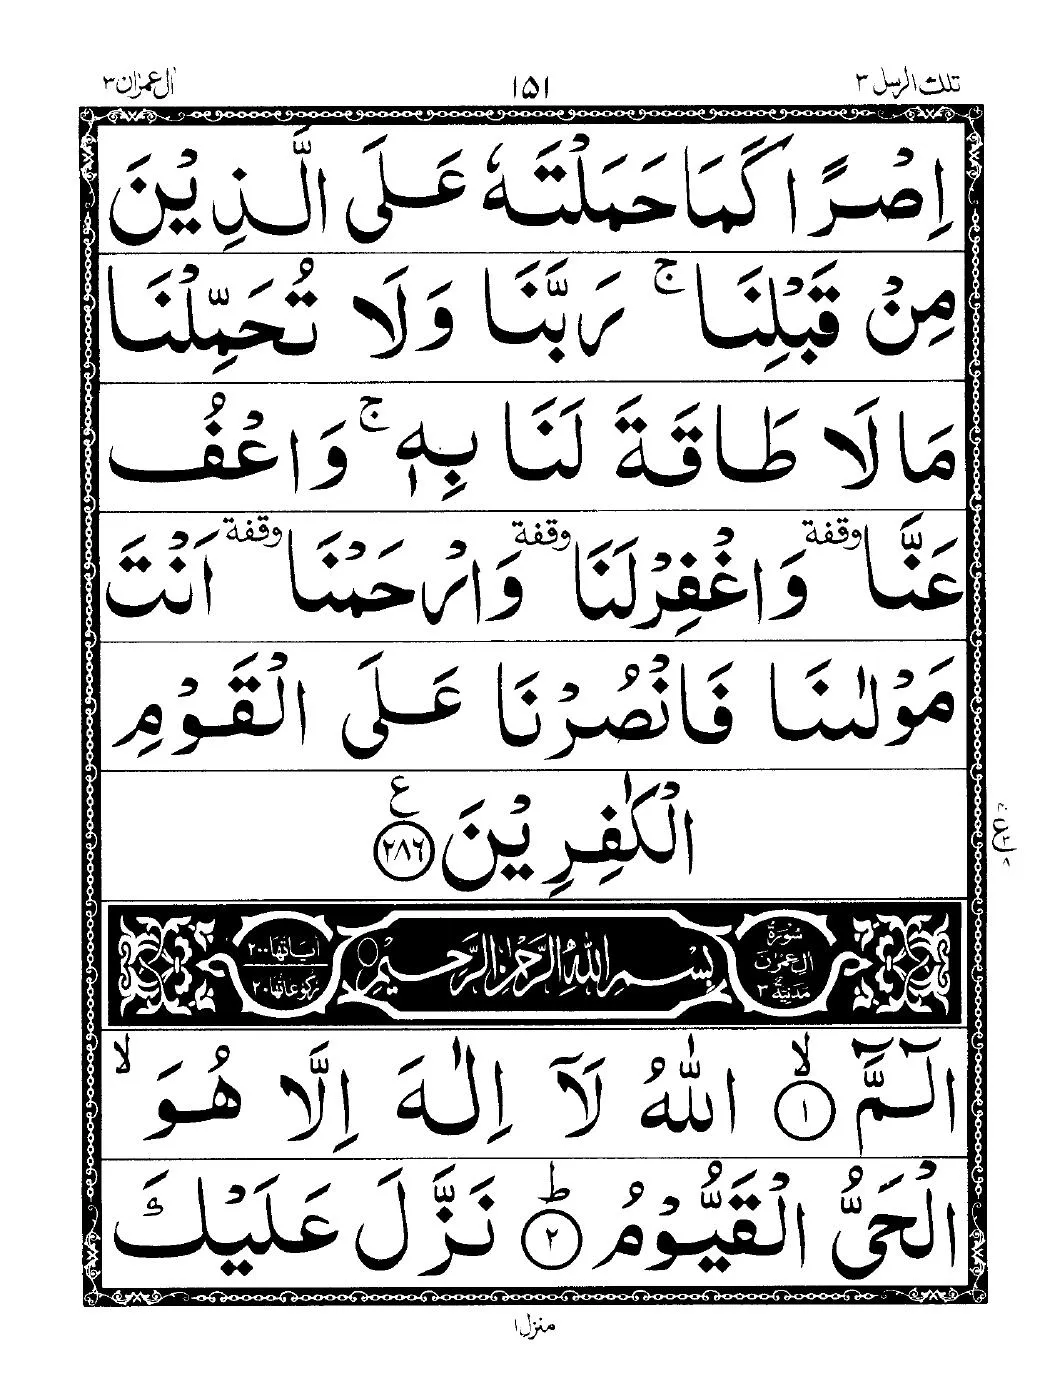 تلك الرسل ٣
١٥١
اٰل عمرٰن ٣
اِصْرًا كَمَا حَمَلْتَهٗ عَلَى الَّذِيْنَ
مِنْ قَبْلِنَا ۚ رَبَّنَا وَلَا تُحَمِّلْنَا
مَا لَا طَاقَةَ لَنَا بِهٖ ۚ وَاعْفُ
عَنَّا وقفة وَاغْفِرْ لَنَا وقفة وَارْحَمْنَا وقفة اَنْتَ
مَوْلٰىنَا فَانْصُرْنَا عَلَى الْقَوْمِ
الْكٰفِرِيْنَ ع ٢٨٦
سُوْرَةُ
اٰلِ عِمْرٰنَ
مَدَنِيَّةٌ ٣
بِسْمِ اللّٰهِ الرَّحْمٰنِ الرَّحِيْمِ
اٰيَاتُهَا ٢٠٠
رُكُوْعَاتُهَا ٢٠
الٓمَّٓ ۙ ١ اللّٰهُ لَآ اِلٰهَ اِلَّا هُوَ ۙ
الْحَيُّ الْقَيُّوْمُ ؕ ٢ نَزَّلَ عَلَيْكَ
منزل ١